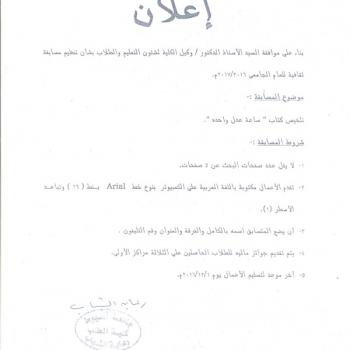 إعلان
بناء على موافقة السيد الأستاذ الدكتور / وكيل الكلية لشئون التعليم والطلاب بشأن تنظيم مسابقة
ثقافية للعام الجامعى ٢٠١٧/٢٠١٦م.
موضوع المسابقة :-
تلخيص كتاب " ساعة عدل واحده ".
شروط المسابقة :-
١- لا يقل عدد صفحات البحث عن ٥ صفحات.
٢- تقدم الأعمال مكتوبة باللغة العربية علي الكمبيوتر بنوع خط Arial بنط (١٦) وتباعد
الأسطر (١).
٣- أن يضع المتسابق اسمه بالكامل والفرقة والعنوان ورقم التليفون .
٤- يتم تقديم جوائز ماليه للطلاب الحاصلين علي الثلاثة مراكز الأولى.
٥- آخر موعد لتسليم الأعمال يوم ٢٠١٦/١٢/١م.
رعاية الشباب
كلية الطب
رعاية الشباب